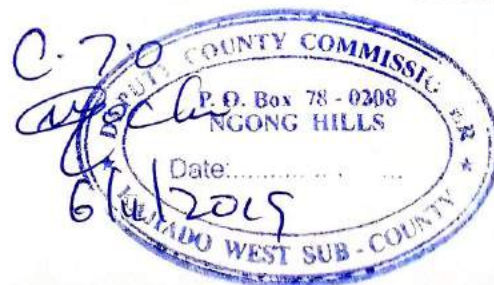 C.
DEPUTY COUNTY COMMISSIONER
P. O. Box 78 - 0208
NGONG HILLS
Date:
2019
KAJIADO WEST SUB - COUNTY